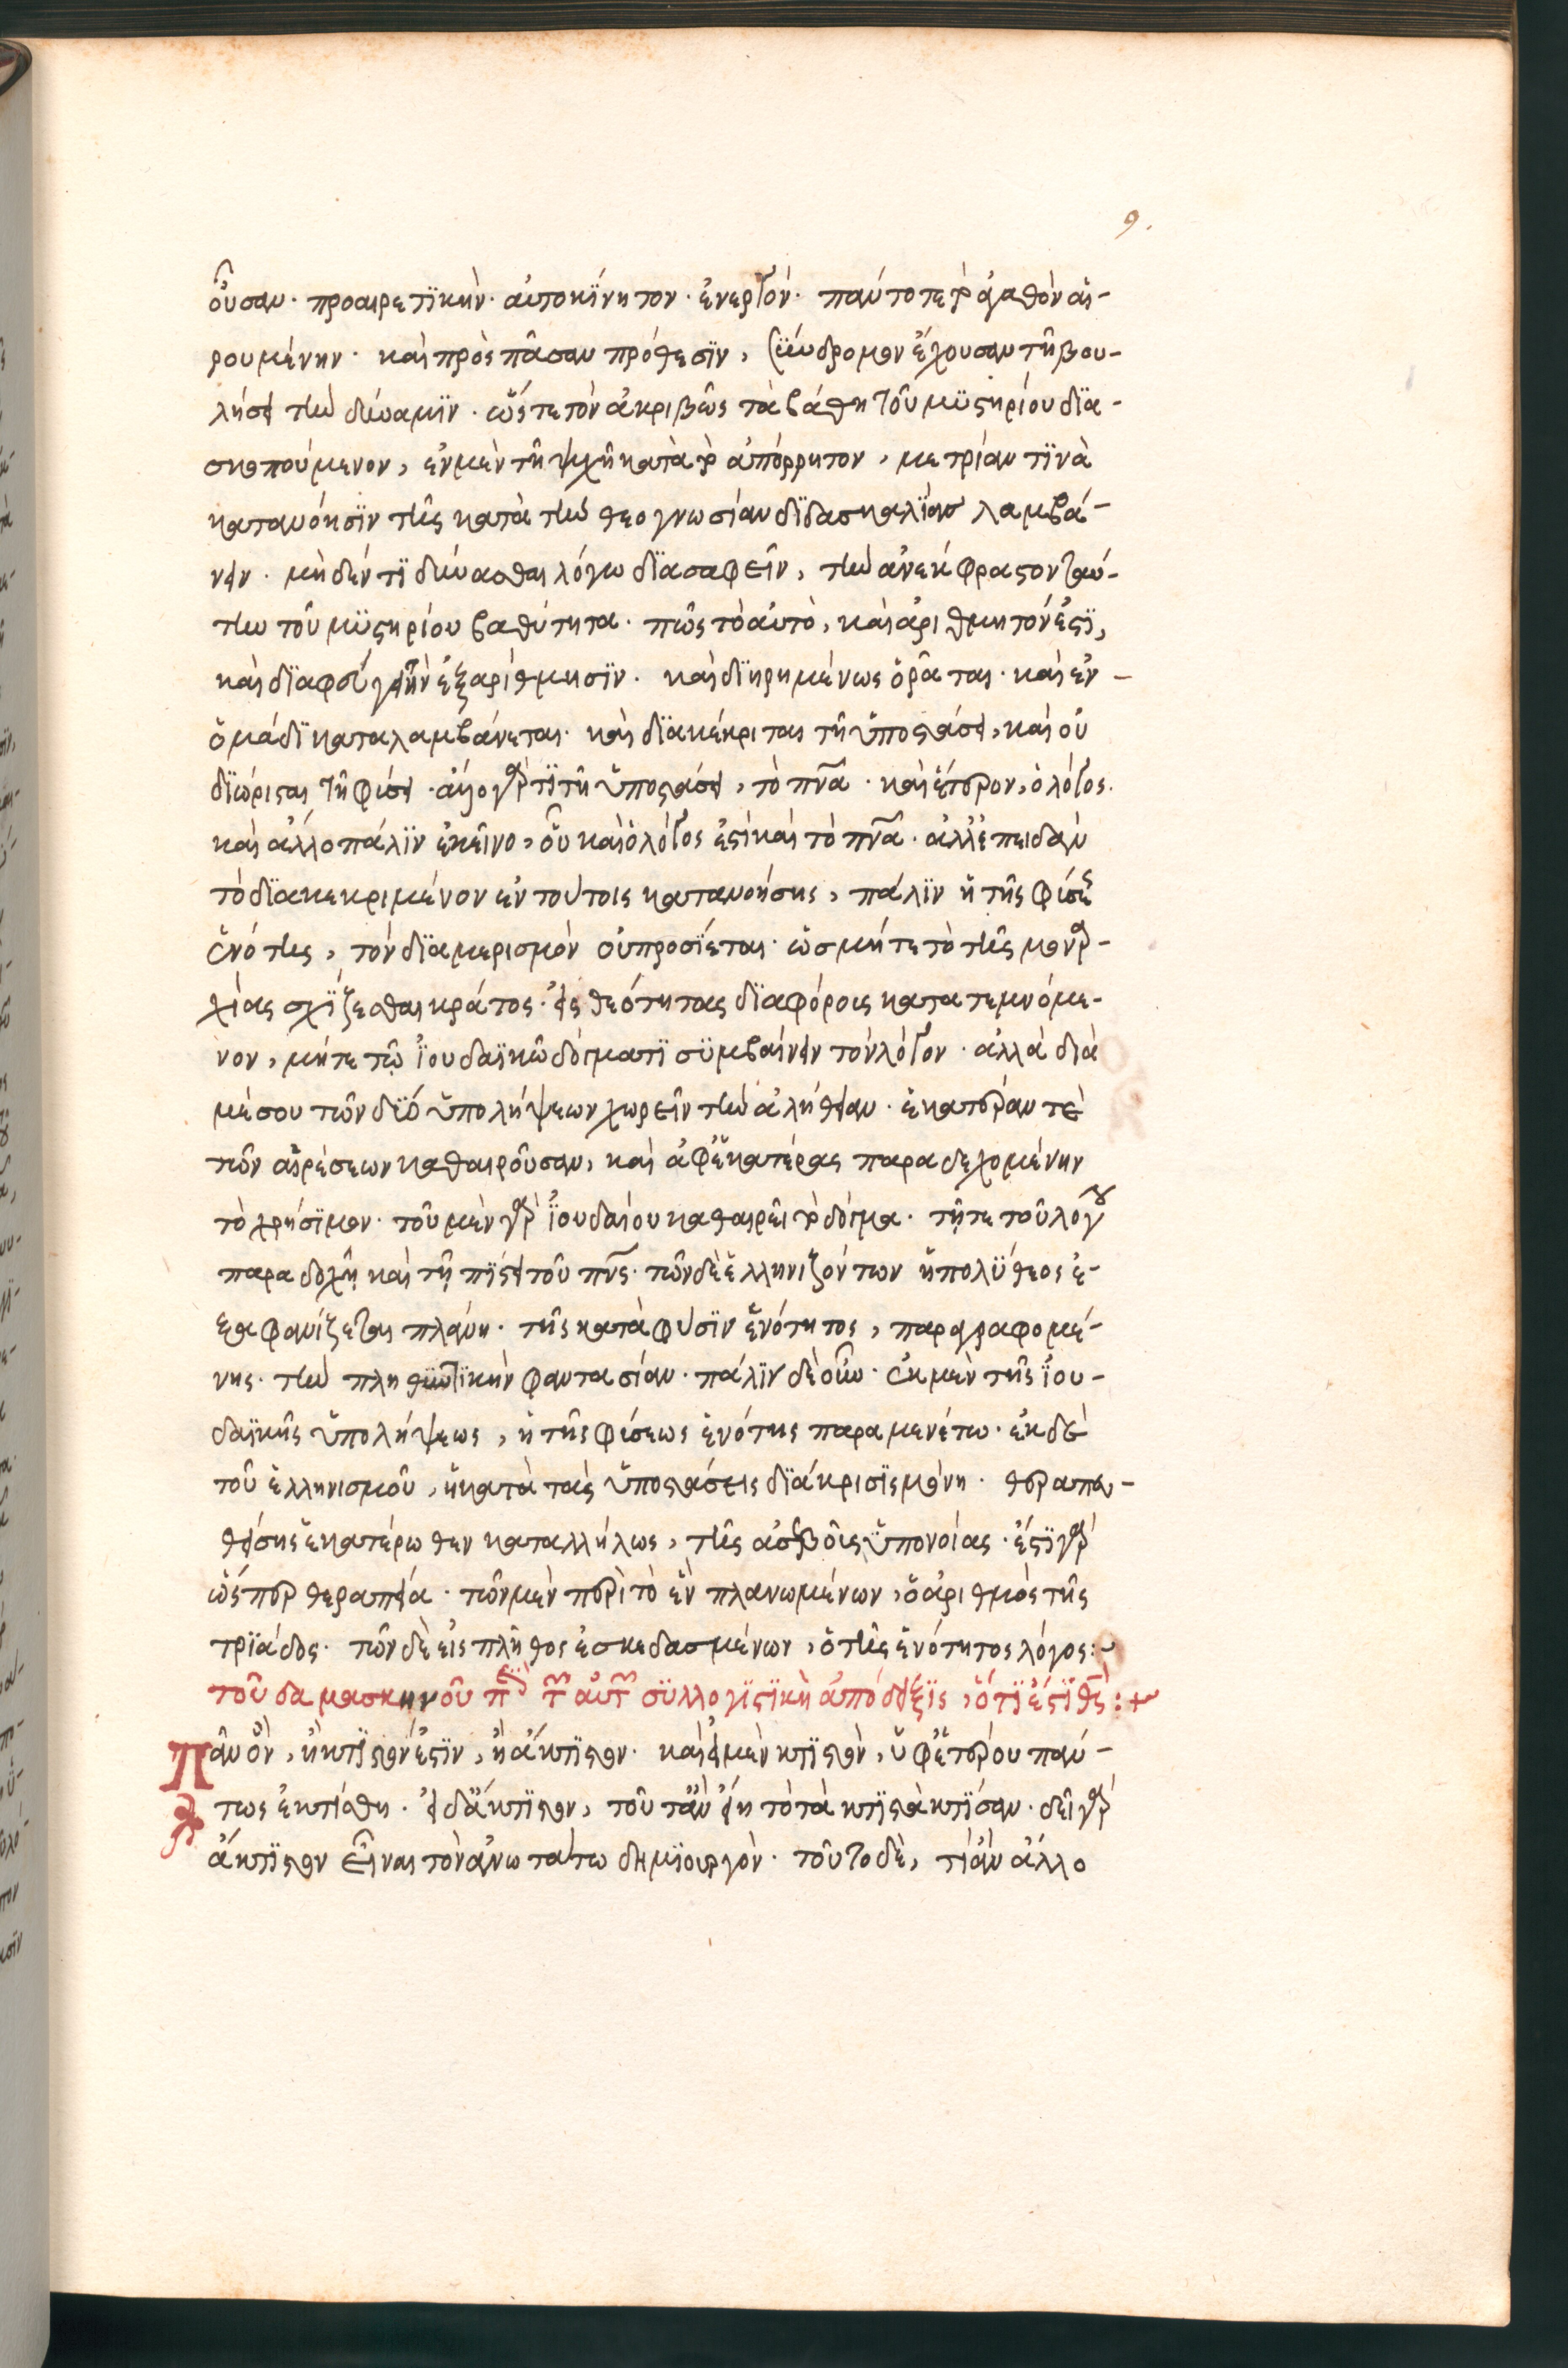 9.
οὖσαν· προαιρετϊκὴν· αὐτοκίνητον· ἐνεργὸν· πάντοτε τὸ ἀγαθὸν αἱ-
ρουμένην· καὶ πρὸς πᾶσαν πρόθεσϊν, σύνδρομον ἔχουσαν τῆ βου-
λήσει τὴν δύναμϊν· ὥστε τὸν ἀκριβῶς τὰ βάθη τοῦ μϋστηρίου δϊα-
σκοπούμενον, ἐν μὲν τῆ ψυχῆ κατὰ τὸ ἀπόρρητον, μετρίαν τϊνὰ
κατανόησϊν τῆς κατὰ τὴν θεογνωσίαν δϊδασκαλίας λαμβά-
νειν· μὴ δέν τϊ δύνασθαι λόγω δϊασαφεῖν, τὴν ἀνέκφραστον ταύ-
την τοῦ μϋστηρίου βαθύτητα· πῶς τὸ αὐτὸ, καὶ ἀριθμητόν ἐστϊ,
καὶ δϊαφεύγει τὴν ἐξαρίθμησϊν· καὶ δϊηρημένως ὁρᾶται· καὶ ἐν
ὁμάδϊ καταλαμβάνεται· καὶ δϊακέκριται τῆ ὑποστάσει, καὶ οὐ
δϊώρισται τῆ φύσει· ἄλλο γάρ τϊ τῆ ὑποστάσει, τὸ πνα· καὶ ἕτερον, ὁ λόγος.
καὶ ἄλλο πάλϊν ἐκεῖνο, οὗ καὶ ὁ λόγος ἐστὶ καὶ τὸ πνα· ἀλλ' ἐπειδὰν
τὸ δϊακεκριμένον ἐν τούτοις κατανοήσης, πάλϊν ἡ τῆς φύσεως
ἑνότης, τὸν δϊαμερισμὸν οὐ προσϊεται· ὡς μήτε τὸ τῆς μοναρ-
χίας σχϊζεσθαι κράτος· εἰς θεότητας δϊαφόροις κατατεμνόμε-
νον, μήτε τῷ ϊουδαϊκῶ δόγματϊ σϋμβαίνειν τὸν λόγον· ἀλλὰ διὰ
μέσου τῶν δύο ὑπολήψεων χωρεῖν τὴν ἀλήθειαν· ἑκατέραν τὲ
τῶν αἱρέσεων καθαιροῦσαν, καὶ ἀφ' ἑκατέρας παραδεχομένην
τὸ χρήσϊμον· τοῦ μὲν γὰρ ϊουδαίου καθαιρεῖ τὸ δόγμα· τῇ τε τοῦ λόγου
παραδοχῇ καὶ τῇ πϊστει τοῦ πνς· τῶν δὲ ἑλληνιζόντων ἡ πολϋθεος ἐ-
ξαφανίζεται πλάνη· τῆς κατὰ φύσϊν ἑνότητος, παραγραφομέ-
νης· τὴν πληθυντϊκὴν φαντασίαν· πάλϊν δὲ οὕτω· ἐκ μὲν τῆς ϊου-
δαϊκῆς ὑπολήψεως, ἡ τῆς φύσεως ἑνότης παραμενέτω· ἐκ δὲ
τοῦ ἑλληνισμοῦ, ἡ κατὰ τὰς ὑποστάσεις δϊάκρισϊς μόνη· θεραπευ-
θείσης ἑκατέρωθεν καταλλήλως, τῆς ἀσεβοῦς ὑπονοίας· ἔστϊ γὰρ
ὥσπερ θεραπεία· τῶν μὲν περὶ τὸ ἓν πλανωμένων, ὁ ἀριθμὸς τῆς
τρϊάδος· τῶν δὲ εἰς πλῆθος ἐσκεδασμένων, ὁ τῆς ἑνότητος λόγος:~
τοῦ δαμασκηνοῦ περὶ τοῦ αὐτοῦ σϋλλογϊστϊκὴ ἀπόδειξϊς, ὅτϊ ἔστϊ θς:+
Πᾶν ὂν, ἢ κτϊστόν ἐστϊν, ἢ ἄκτϊστον· καὶ εἰ μὲν κτϊστὸν, ὑφ' ἑτέρου πάν-
τως ἐκτίσθη· εἰ δ' ἄκτϊστον, τοῦτ' ἂν εἴη τὸ τὰ κτϊστὰ κτϊσαν· δεῖ γὰρ
ἄκτϊστον εἶναι τὸν ἀνωτάτω δημϊουργὸν· τοῦτο δὲ, τί ἂν ἄλλο